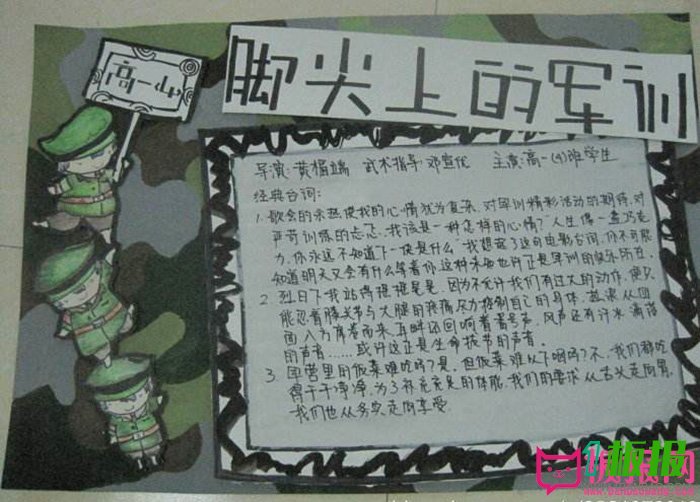 脚尖上的军训
高一4
导演:黄楣端 武术指导:邓宣优 主演:高一(4)班学生
经典台词:
1.歌会的余热使我的心情犹为复杂,对军训精彩活动的期待,对
严苛训练的忐忑,我该是一种怎样的心情?"人生像一盒巧克
力,你永远不知道下一块是什么"我想起了这句电影台词,你不可能
知道明天又会有什么等着你,这种未知也许正是军训的快乐所在.
2.烈日下,我站得摇摇晃晃,因为不允许我们有过大的动作,便只
能忍着膝关节与大腿的疼痛尽力控制自己的身体,热浪从四
面八方席卷而来,耳畔还回响着番号声,风声还有汗水滴落
的声音……或许这正是生命拔节的声音.
3.军营里的饭菜难吃吗?是.但饭菜难以下咽吗?不.我们都吃
得干干净净,为了补充衰竭的体能.我们的要求从舌头走向胃,
我们也从务实走向享受.
板报网